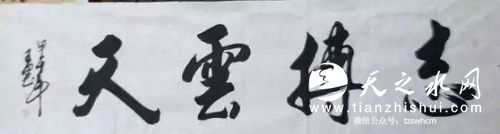 志搏雲天
天之水网
www.tianzhishui.com
微信公众号：tzswhcm